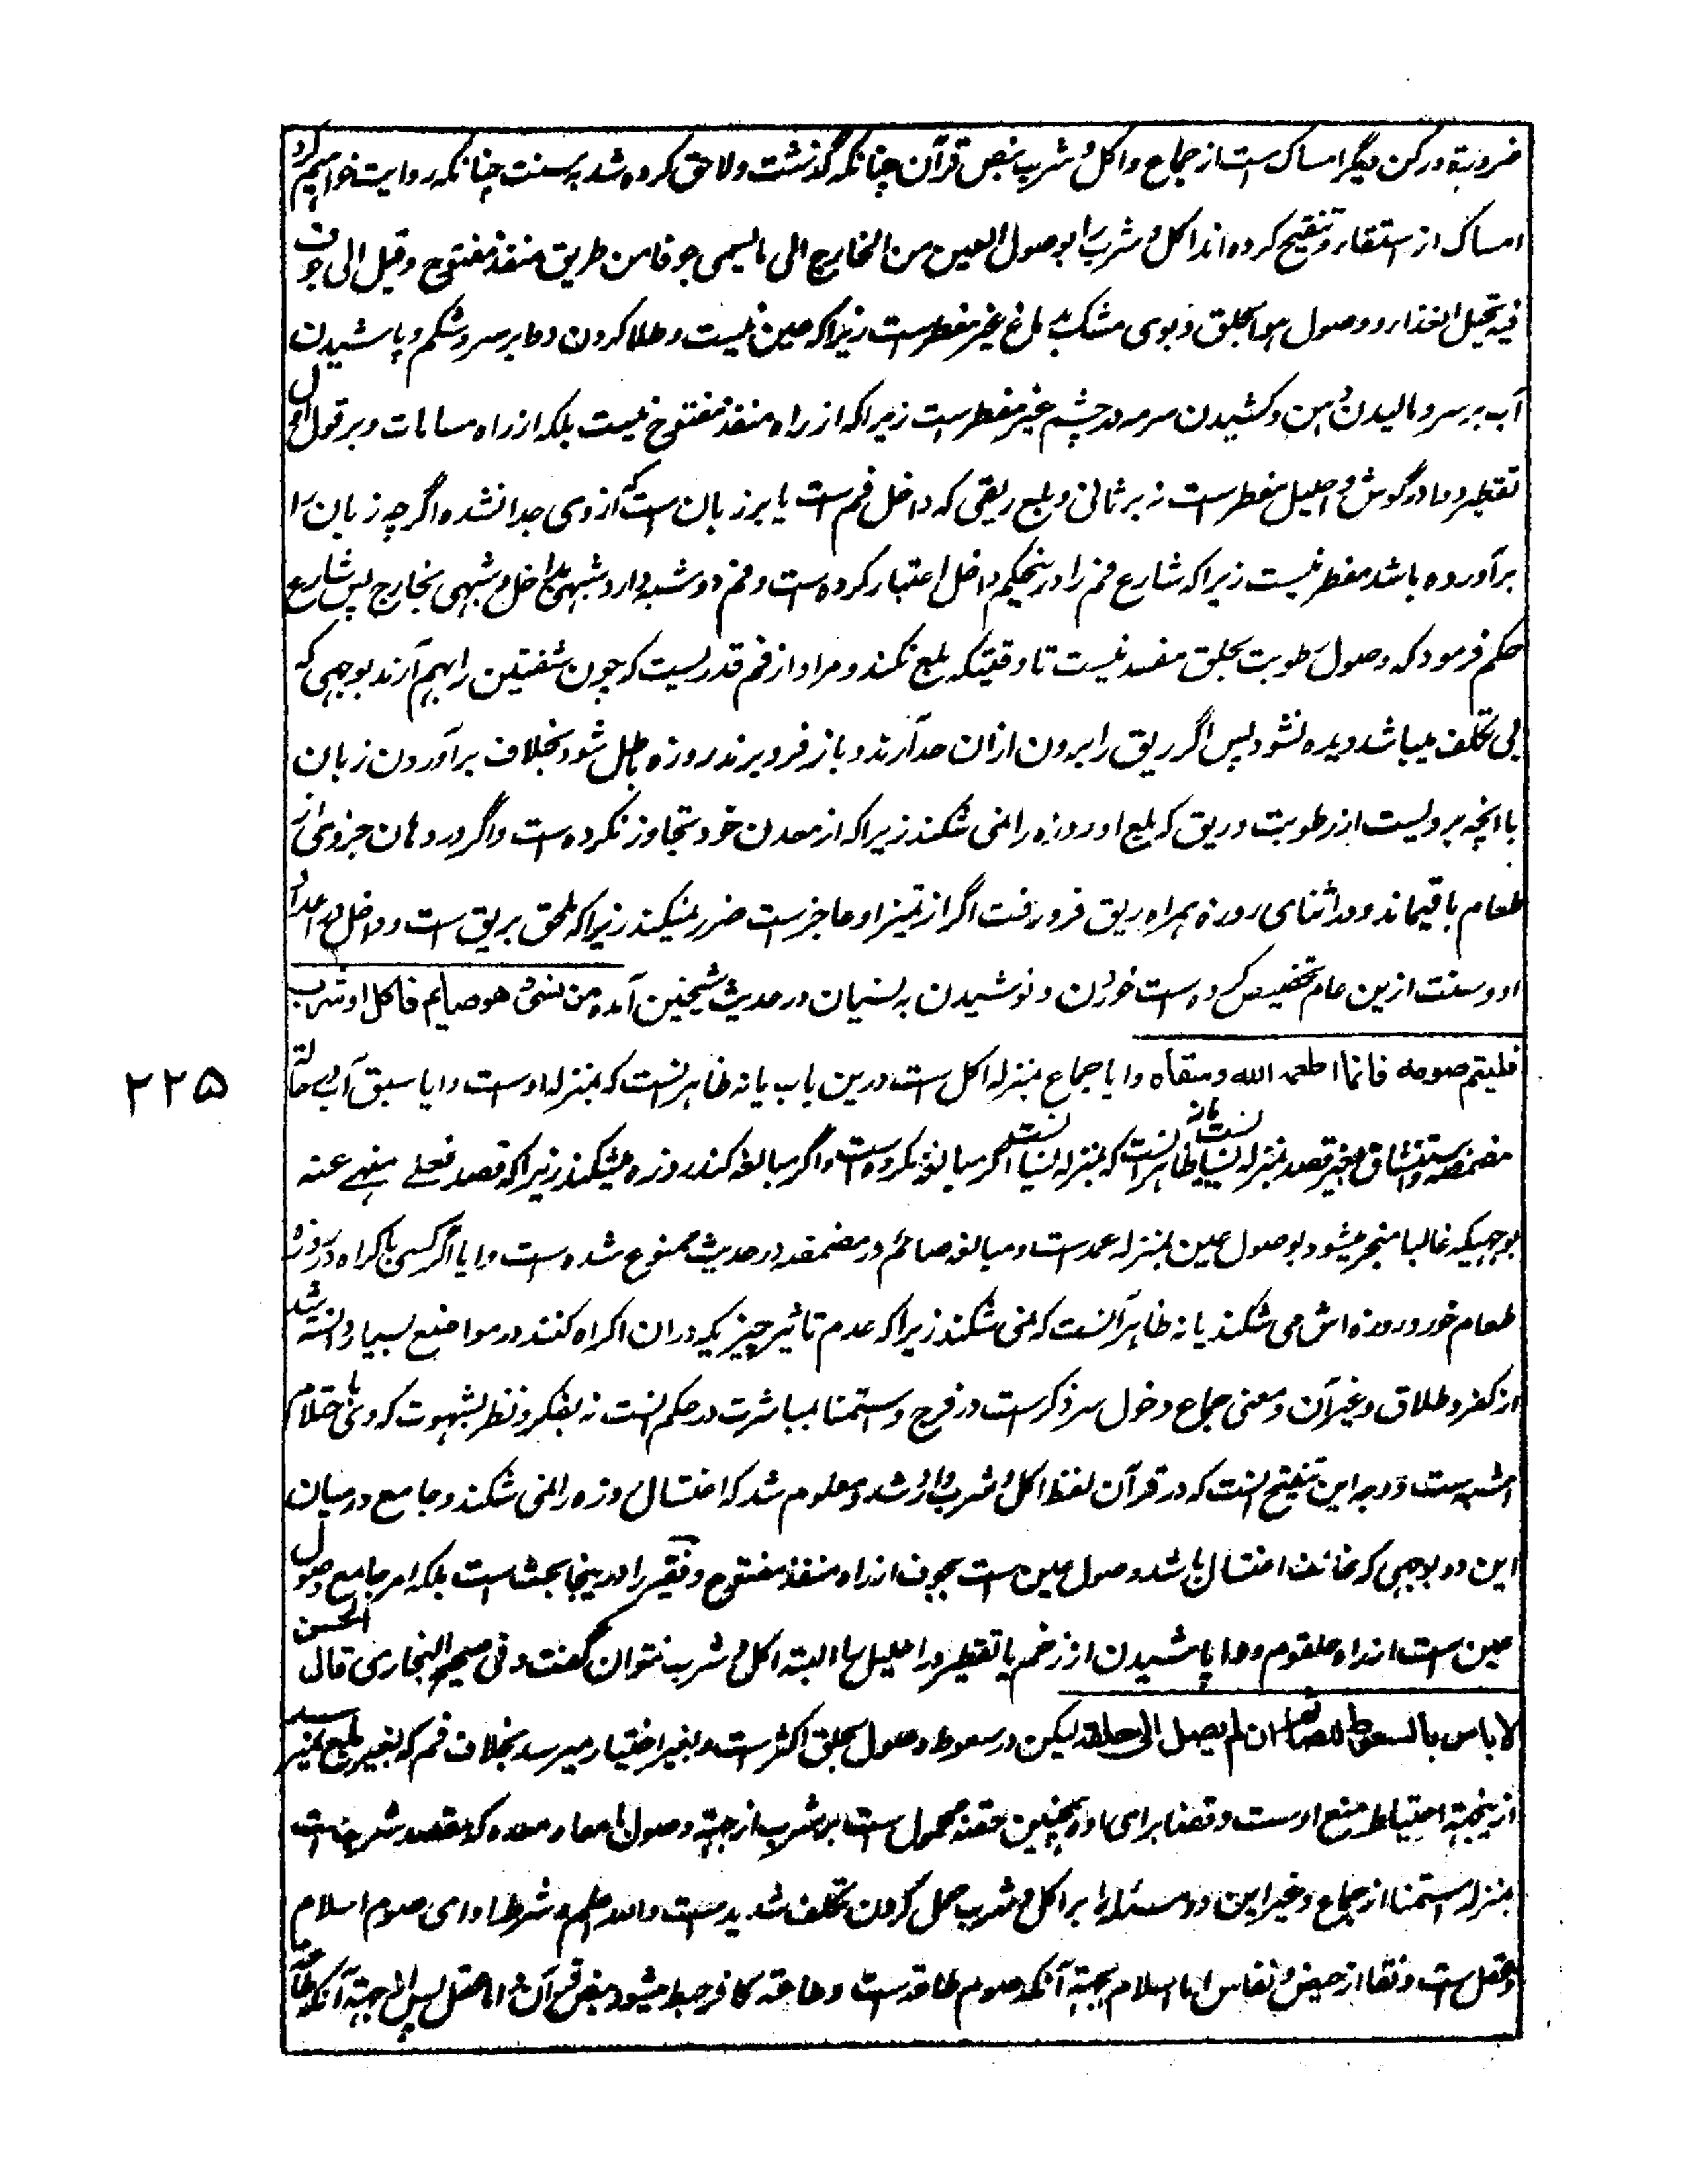 ضرورة ورکن دیگر امساک ست از جماع واکل و شرب بنص قرآن چنانکه گذشت ولاحق کرده شد بسنت چنانکه روایت خواهیم کرد
امساک از استقاء و تنقیح کرده اند اکل و شرب را بوصول العین من الخارج الی ما یسمی جوفا من طریق منفذ مفتوح وقیل الی جوف
فیه تحیل الغذاء و وصول هوا بحلق و بوی مشک بدماغ غیر مفطرست زیراکه عین نیست و طلا کردن دوا بر سر و شکم و پاشیدن
آب بر سر و مالیدن دهن و کشیدن سرمه در چشم غیر مفطرست زیراکه از راه منفذ مفتوح نیست بلکه از راه مسامات و بر قول اول
تقطیر دوا در گوش و احلیل مفطرست نه بر ثانی و بلع ریقی که داخل فم ست یا بر زبان ست که از وی جدا نشده اگرچه زبان را
برآورده باشد مفطر نیست زیراکه شارع فم را درینحکم داخل اعتبار کرده ست و فم دو شبه دارد شبهی بداخل و شبهی بخارج پس شارع
حکم فرمود که وصول رطوبت بحلق مفسد نیست تا وقتیکه بلع نکند و مراد از فم قدریست که چون شفتین را بهم آرند بوجهی که
بی تکلف میباشد دیده نشود پس اگر ریق را برون ازان حد آرند و باز فرو برند روزه باطل شود بخلاف برآوردن زبان
با انچه بر ویست از رطوبت و ریق که بلع او روزه را نمی شکند زیراکه از معدن خود تجاوز نکرده ست و اگر در دهان جزوی از
طعام باقیماند و در اثنای روزه همراه ریق فرو رفت اگر از تمیز او عاجزست ضرر نمیکند زیراکه ملحق بریق ست و داخل در عداد
او و سنت ازین عام تخصیص کرده ست خوردن و نوشیدن به نسیان در حدیث شیخین آمده من نسی و هو صایم فاکل او شرب
فلیتم صومه فانما اطعمه الله وسقاه و ایا جماع بمنزله اکل ست درین باب یا نه ظاهر آنست که بمنزله اوست و ایا سبق آب در حالت
مضمضه و استنشاق بغیر قصد بمنزله نسیانست یا نه ظاهر آنست که بمنزله نسیانست اگر مبالغه نکرده ست و اگر مبالغه کند روزه میشکند زیراکه قصد فعلے منهی عنه
بوجهیکه غالبا منجر میشود بوصول عین بمنزله عمدست و مبالغه صائم در مضمضه در حدیث ممنوع شده ست و ایا اگر کسی باکراه در روزه
طعام خورد روزه اش می شکند یا نه ظاهر آنست که نمی شکند زیراکه عدم تاثیر چیزیکه دران اکراه کنند در مواضع بسیار دانسته شد
از کفر و طلاق و غیر آن و معنی جماع دخول سر ذکرست در فرج و استمنا بمباشرت در حکم آنست نه بفکر و نظر بشهوت که وی باحتلام
اشبه ست و وجه این تنقیح آنست که در قرآن لفظ اکل و شرب وارد شد و معلوم شد که اغتسال روزه را نمی شکند و جامع در میان
این دو بوجهی که مخالف اغتسال باشد وصول عین ست بجوف از راه منفذ مفتوح و فقیر را درینجا بحث است بلکه امر جامع وصول
عین ست از راه حلقوم و دوا پاشیدن از زخم یا تقطیر در احلیل را البته اکل و شرب نتوان گفت و فی صحیح البخاری قال الحسن
لا باس بالسعوط للصائم ان لم یصل الی حلقه لیکن در سعوط وصول بحلق اکثرست و بغیر اختیار میرسد بخلاف فم که بغیر بلع نمیرسد
ازینجهة احتیاط منع اوست و قضا برای او و همچنین حقنه محمول ست بر شرب از جهة وصول بامعا و معده که مقصد شرب ست
بمنزله استمنا از جماع و غیر این دو مسئله را بر اکل و شرب حمل کردن تکلف شدید ست والله اعلم و شرط ادای صوم اسلام
و عقل ست و نقا از حیض و نفاس اما اسلام بجهة آنکه صوم طاعة ست و طاعة کافر حبط میشود بنص قرآن و اما عقل پس از جهة آنکه
۲۲۵